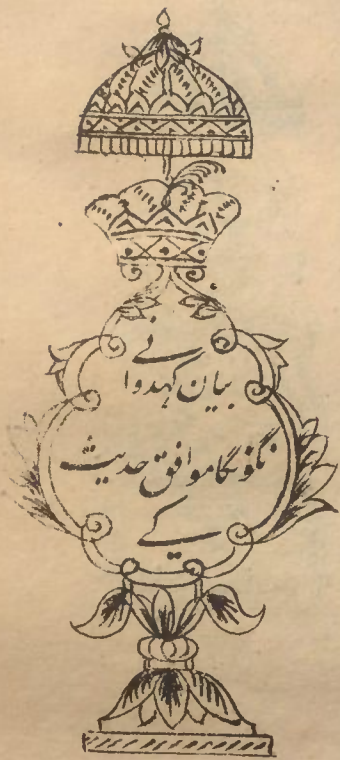 بیان کہدوانے
نگونکا موافق حدیث
کے